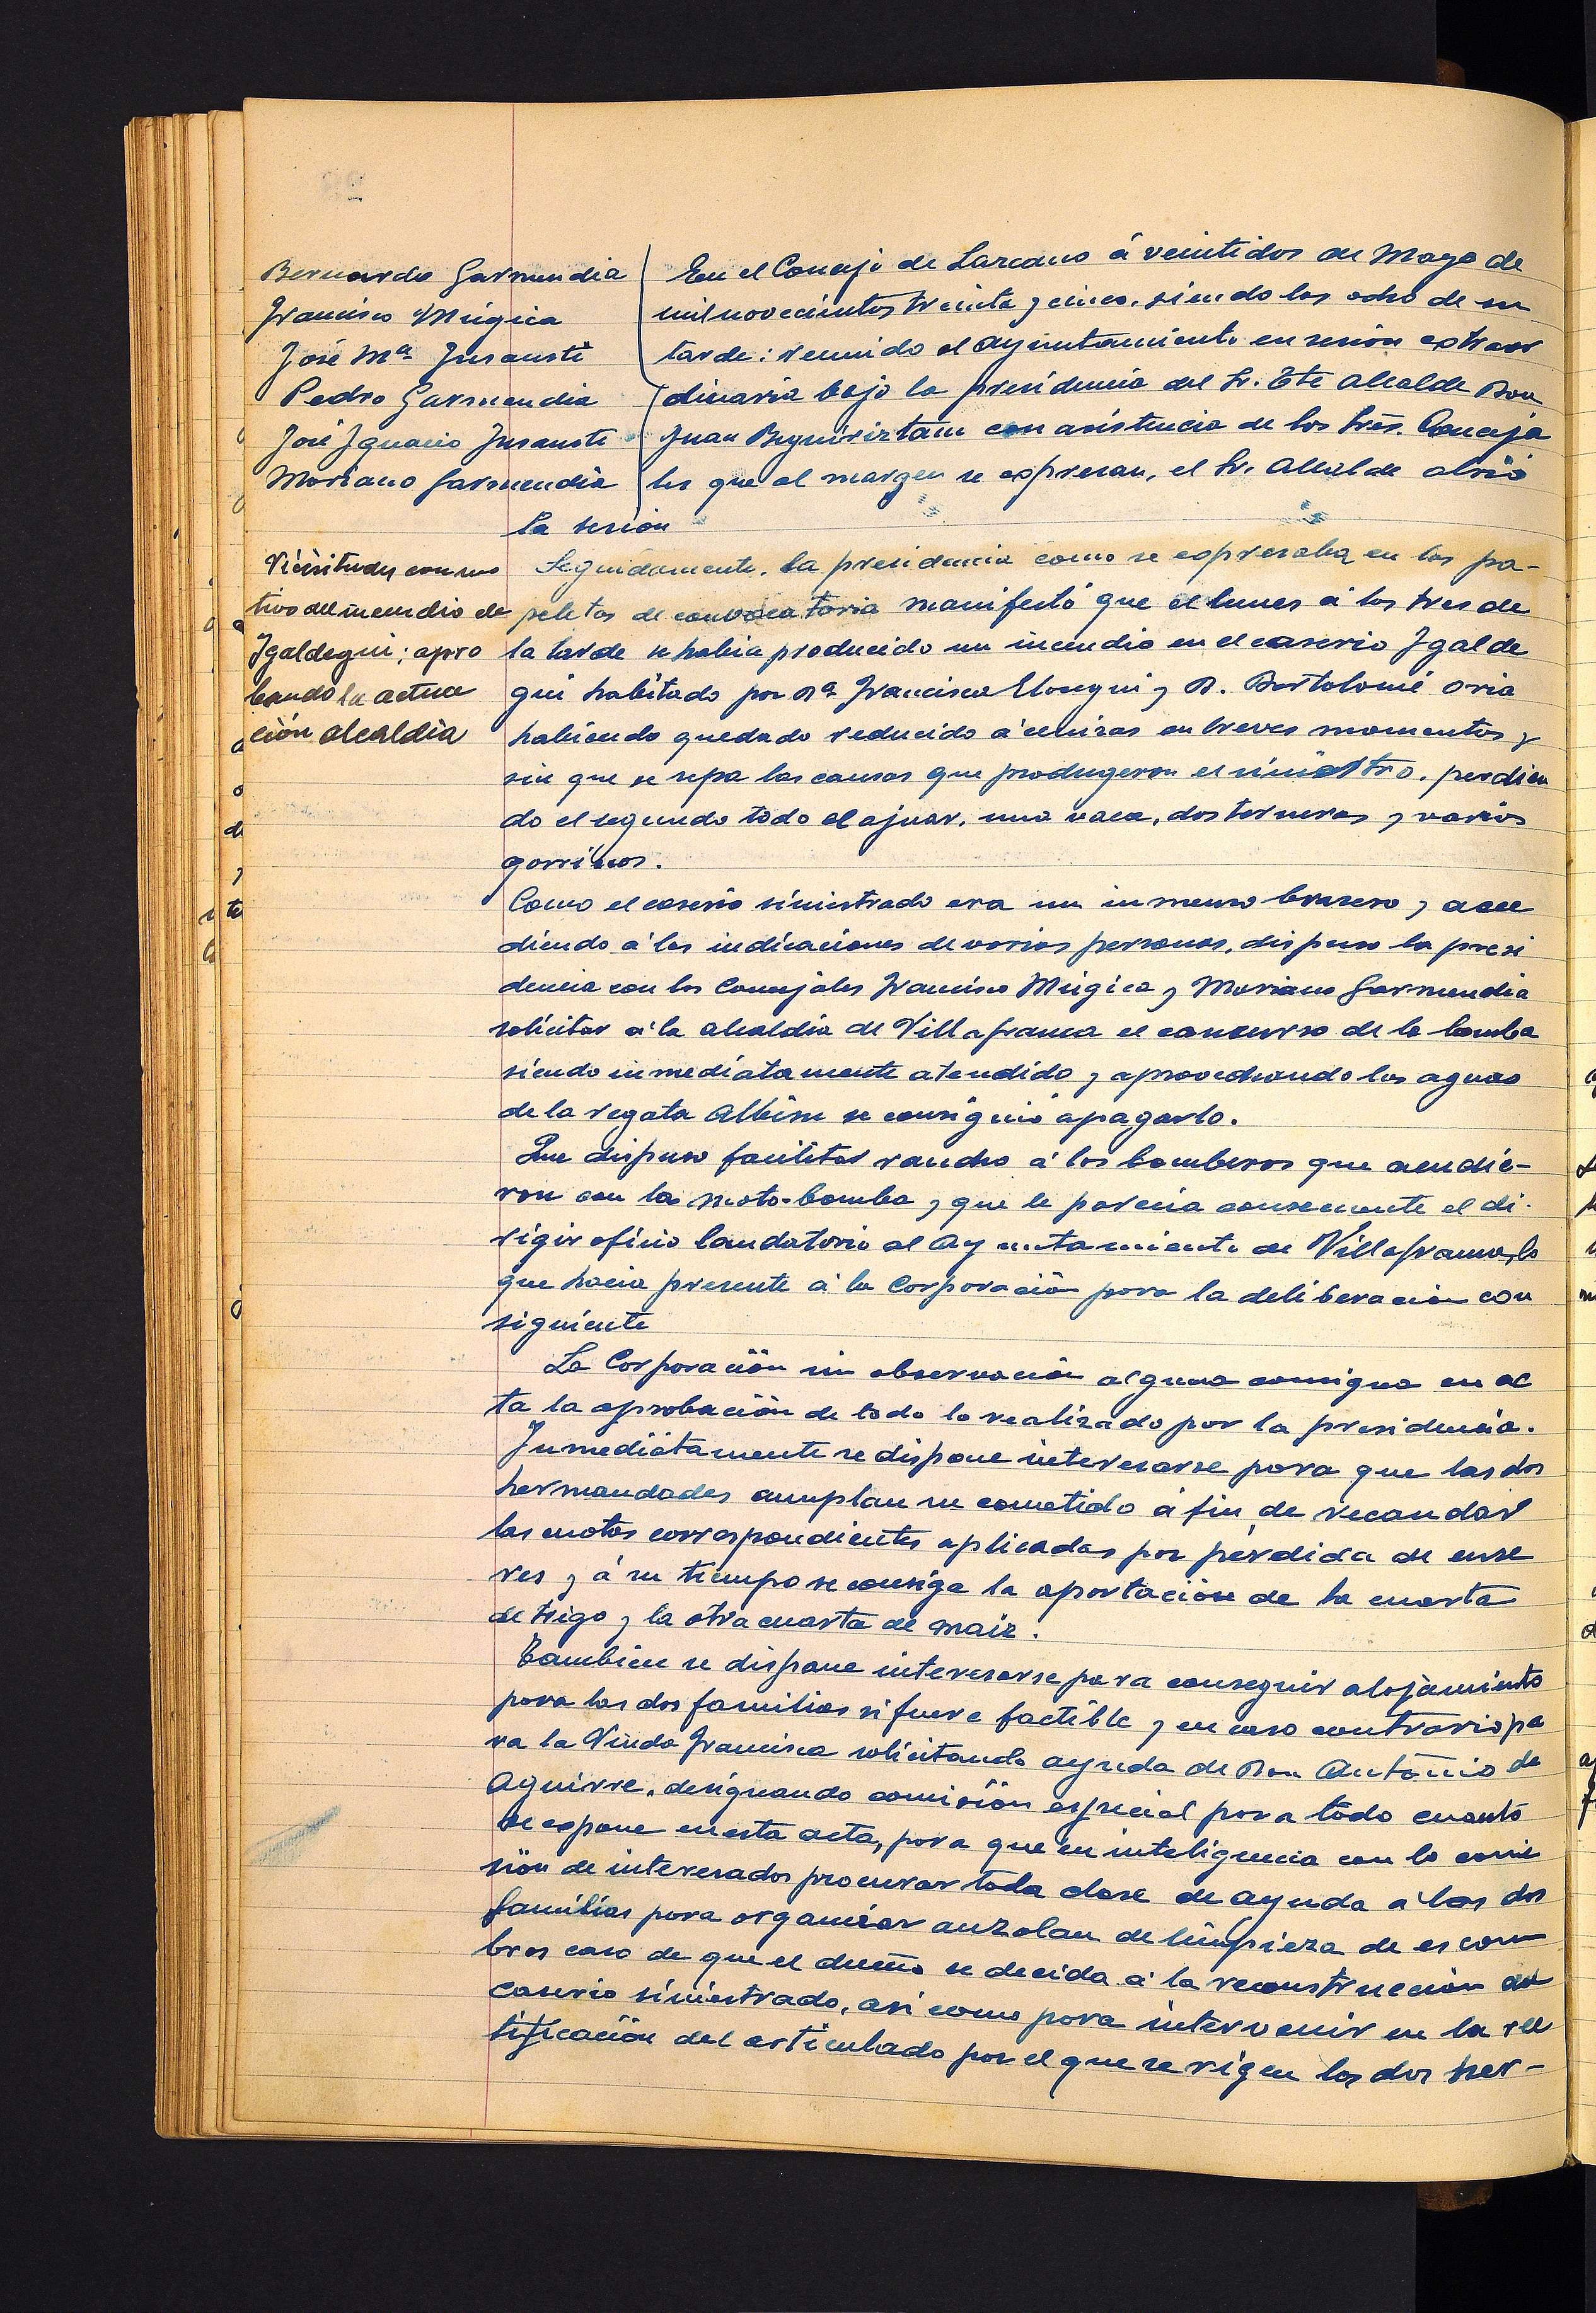 Bernardo Garmendia
Francisco Múgica
José Mª Insausti
Pedro Garmendia
José Ignacio Insausti
Mariano Garmendia
En el Concejo de Lazcano á veintidos de Mayo de
mil novecientos treinta y cinco, siendo las ocho de su
tarde: reunido el Ayuntamiento en sesion extraor
dinaria bajo la presidencia del Sr. Tte Alcalde Don
Juan Beguiriztain con asistencia de los Sres. Conceja
les que al margen se expresan, el Sr. Alcalde abrió
la sesión
Vicisitudes con mo
tivo del incendio de
Igaldegui; apro
bando la actua
ción alcaldia
Seguidamente, la presidencia como se expresaba en las pa-
peletas de convocatoria manifestó que el lunes á las tres de
la tarde se habia producido un incendio en el caserio Igalde
gui habitado por Dª Francisca Elosegui y D. Bartolomé Oria
habiendo quedado reducido á cenizas en breves momentos y
sin que se sepa las causas que produgeron el siniestro, perdien
do el segundo todo el ajuar, una vaca, dos terneras y varios
gorrinos.
Como el caserio siniestrado era un inmenso brasero y acce
diendo á las indicaciones de varias personas, dispuso la presi
dencia con los Concejales Francisco Múgica y Mariano Garmendia
solicitar á la alcaldia de Villafranca el concurso de la bomba
siendo inmediatamente atendido y aprovechando las aguas
de la regata Albisu se consiguió apagarlo.
Que dispuso facilitar rancho á los bomberos que acudie-
ron con la moto-bomba y que le parecia consecuente el di-
rigir oficio laudatorio al Ayuntamiento de Villafranca, lo
que hacia presente á la Corporación para la deliberación con
siguiente
La Corporación sin observación alguna consigna en ac
ta la aprobación de todo lo realizado por la presidencia.
Inmediatamente se dispone interesarse para que las dos
hermandades cumplan su cometido á fin de recaudar
las cuotas correspondientes aplicadas por pérdida de ense
res y á su tiempo se consiga la aportación de la cuarta
de trigo y la otra cuarta de maiz.
Tambien se dispone interesarse para conseguir alojamiento
para las dos familias si fuere factible y en caso contrario pa
ra la Viuda Francisca solicitando ayuda de Don Antonio de
Aguirre, designando comisión especial para todo cuanto
se expone en esta acta, para que en inteligencia con la comi
sión de interesados procurar toda clase de ayuda á las dos
familias para organizar auzolan de limpieza de escom
bros caso de que el dueño se decida á la reconstrucción del
caserio siniestrado, asi como para intervenir en la rec
tificación del articulado por el que se rigen las dos her-